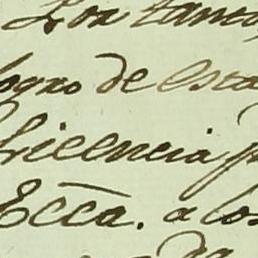 Por tanto,
logro de esta
Licencia p
Ecca. a los